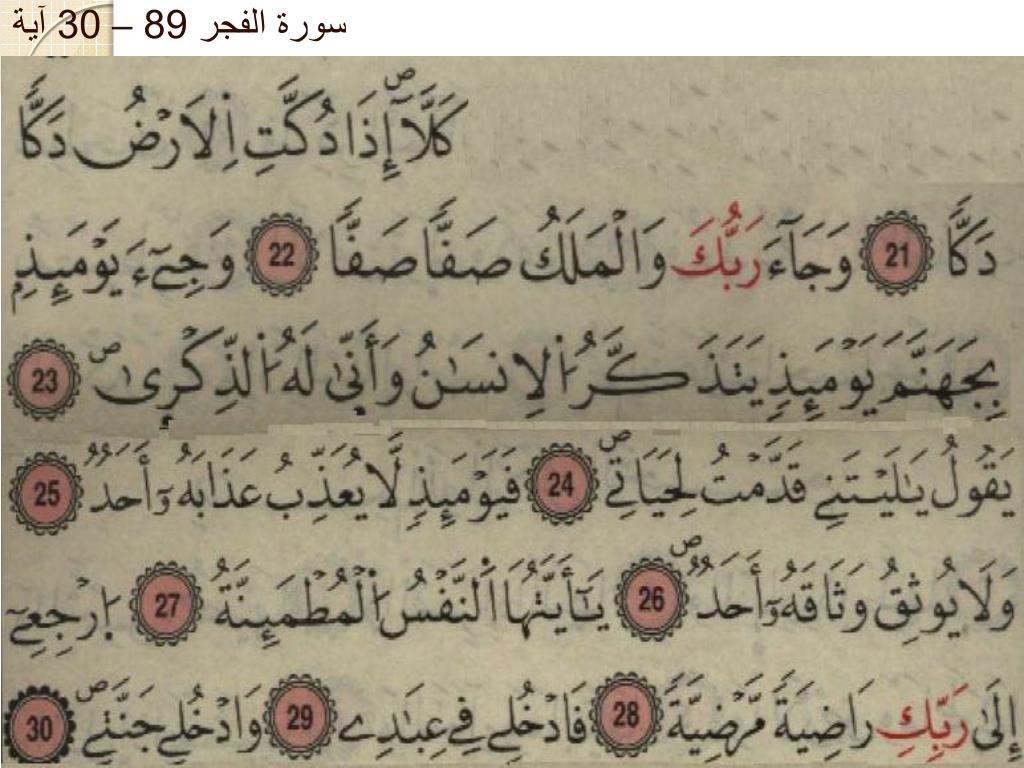 سورة الفجر 89 – 30 آية
كَلَّآ إِذَا دُكَّتِ اِ۬لَارْضُ دَكّاٗ
دَكّاٗ 21 وَجَآءَ رَبُّكَ وَالْمَلَكُ صَفّاٗ صَفّاٗ 22 وَجِےٓءَ يَوْمَئِذِۢ
بِجَهَنَّمَ يَوْمَئِذٖ يَتَذَكَّرُ اُ۬لِانسَٰنُ وَأَنّ۪يٰ لَهُ اُ۬لذِّكْر۪يٰ ص 23
يَقُولُ يَٰلَيْتَنِے قَدَّمْتُ لِحَيَاتِے ص 24 فَيَوْمَئِذٖ لَّا يُعَذِّبُ عَذَابَهُۥٓ أَحَدٞ 25
وَلَا يُوثِقُ وَثَاقَهُۥٓ أَحَدٞ ص 26 يَٰٓأَيَّتُهَا اَ۬لنَّفْسُ اُ۬لْمُطْمَئِنَّةُ 27 اُ۪رْجِعِےٓ
إِلَيٰ رَبِّكِ رَاضِيَةٗ مَّرْضِيَّةٗ 28 فَادْخُلِے فِے عِبَٰدِے 29 وَادْخُلِے جَنَّتِے ص 30